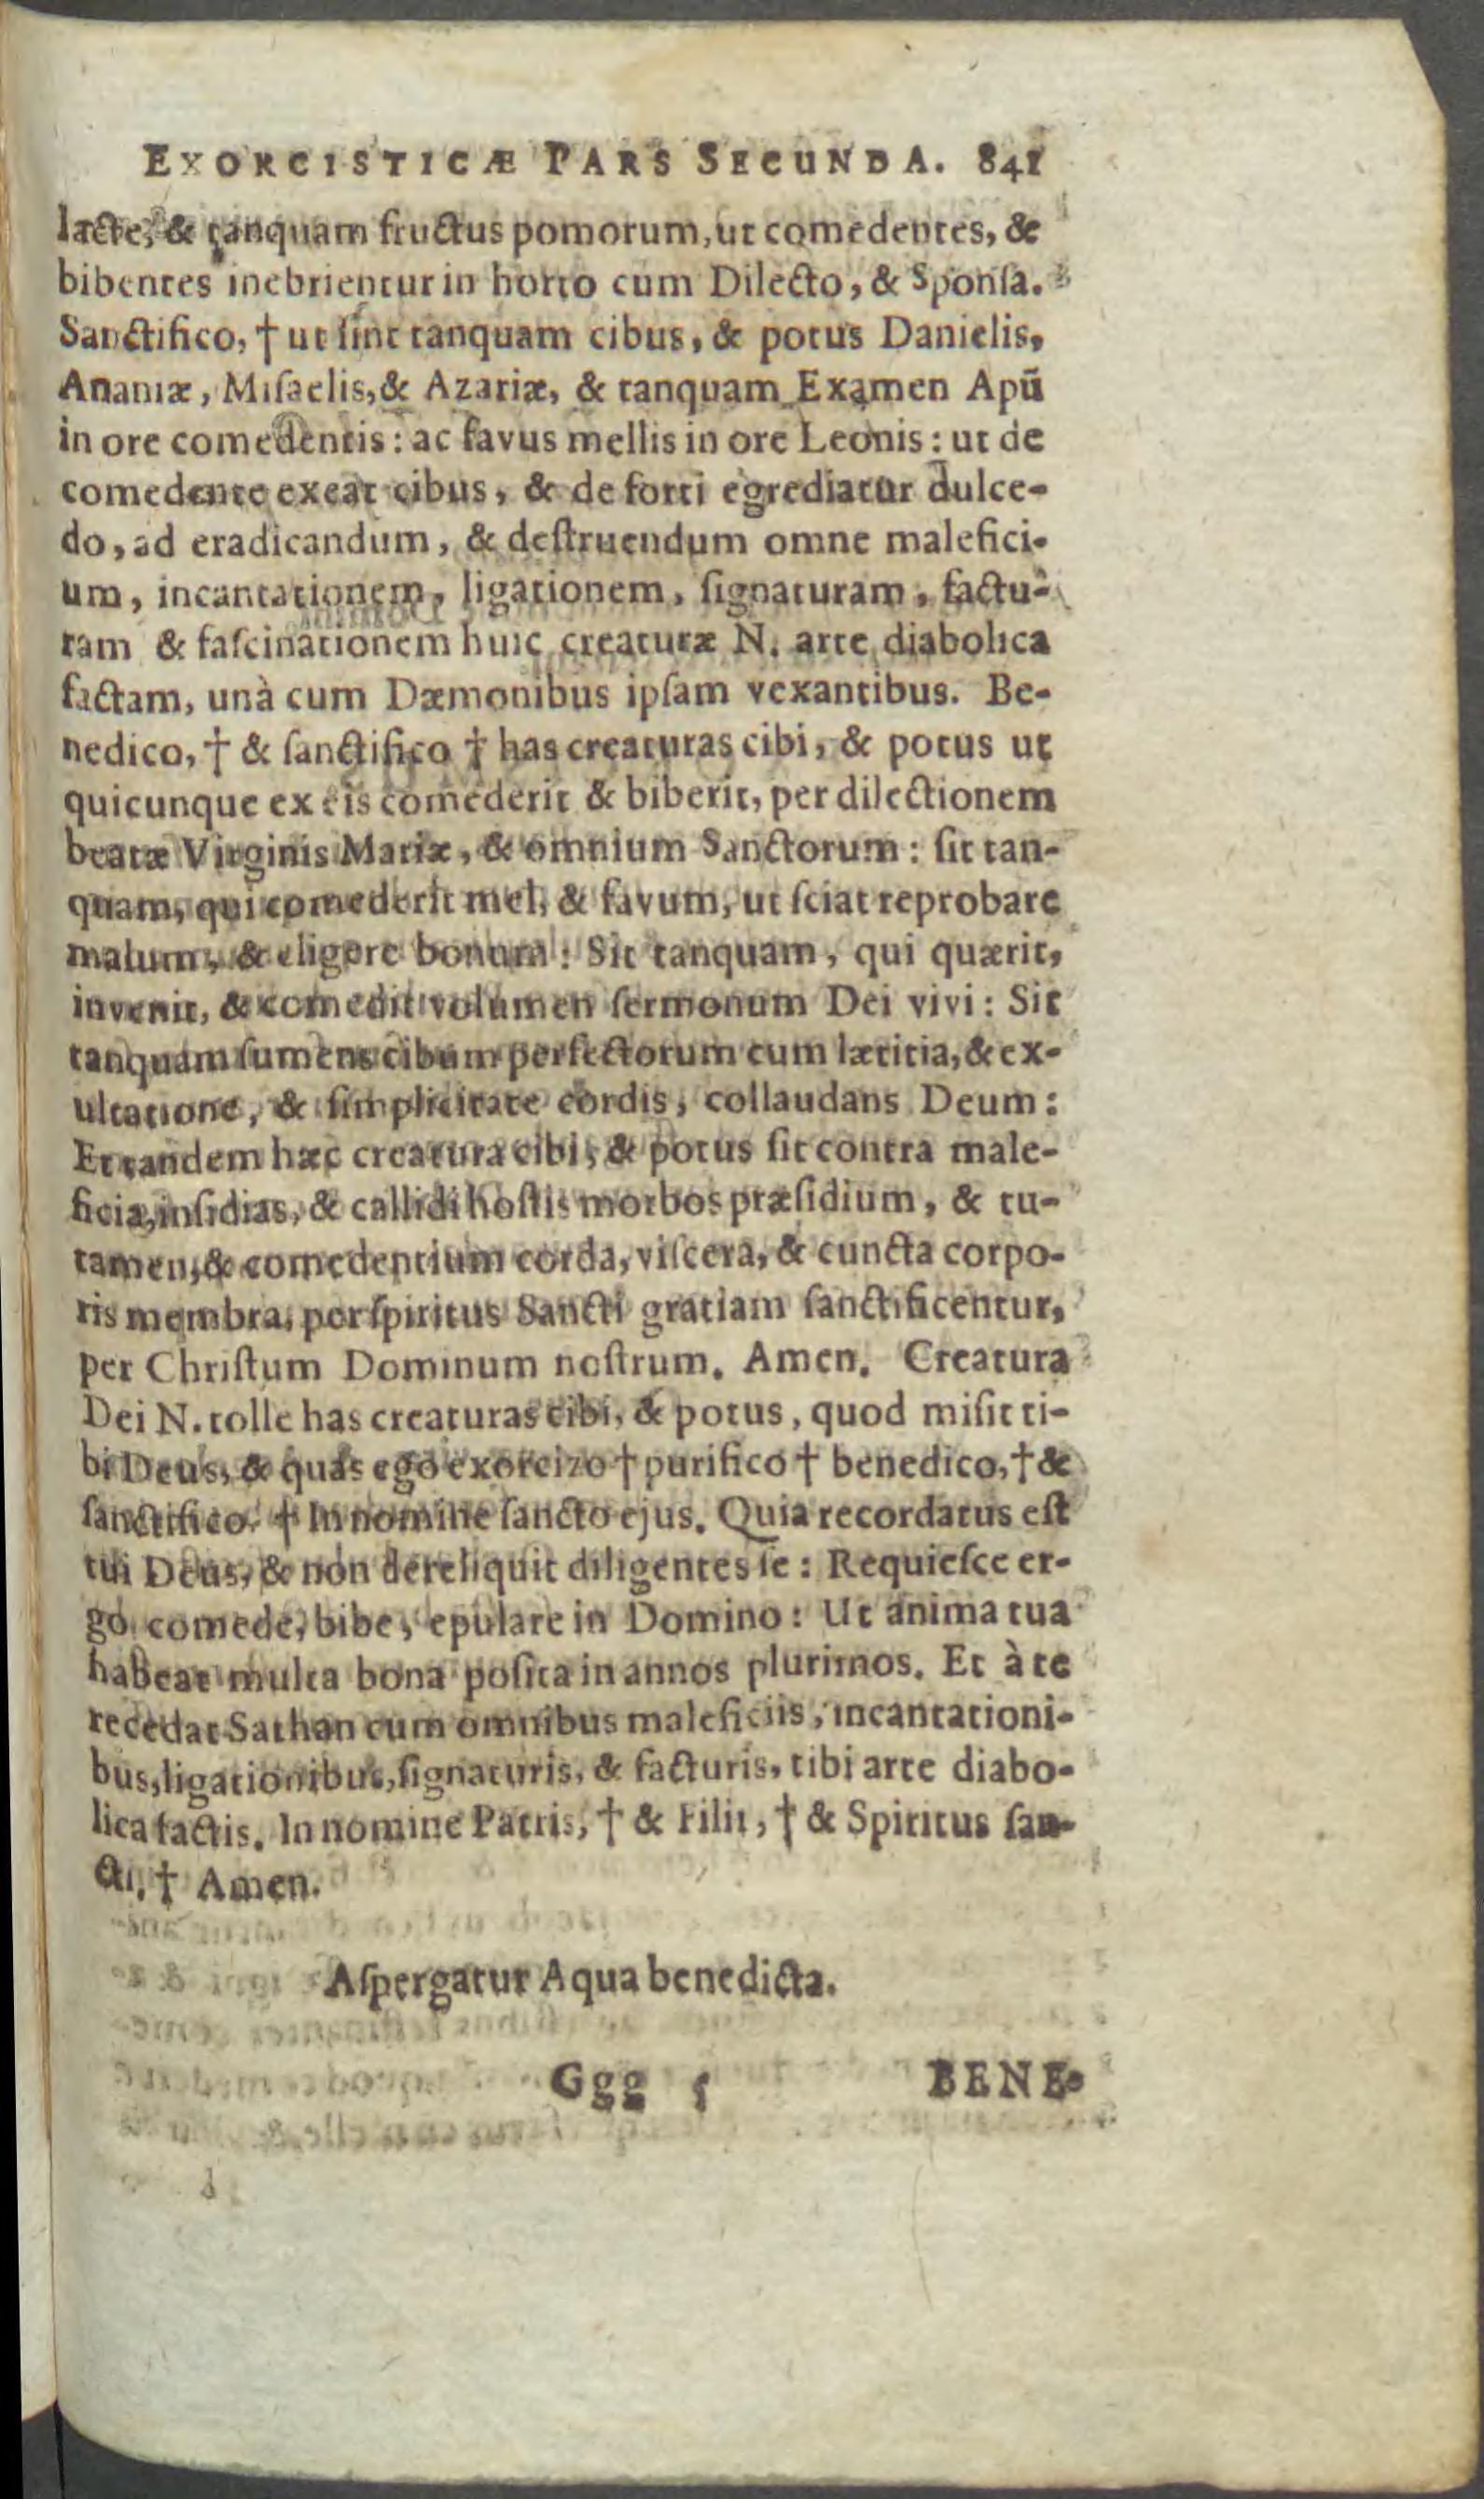 EXORCISTICÆ PARS SECUNDA. 841
lacte, & tanquam fructus pomorum, ut comedentes, &
bibentes inebrientur in horto cum Dilecto, & Sponſa.
Sanctifico, † ut ſint tanquam cibus, & potus Danielis,
Ananiæ, Miſaelis, & Azariæ, & tanquam Examen Apū
in ore comedentis: ac favus mellis in ore Leonis: ut de
comedente exeat cibus, & de forti egrediatur dulce-
do, ad eradicandum, & deſtruendum omne malefici-
um, incantationem, ligationem, ſignaturam, factu-
ram & faſcinationem huic creaturæ N. arte diabolica
factam, unà cum Dæmonibus ipſam vexantibus. Be-
nedico, † & ſanctifico † has creaturas cibi, & potus ut
quicunque ex eis comederit & biberit, per dilectionem
beatæ Virginis Mariæ, & omnium Sanctorum: ſit tan-
quam, qui comederit mel, & favum, ut ſciat reprobare
malum, & eligere bonum: Sit tanquam, qui quærit,
invenit, & comedit volumen ſermonum Dei vivi: Sit
tanquam ſumens cibum perfectorum cum lætitia, & ex-
ultatione, & ſimplicitate cordis, collaudans Deum:
Et tandem hæc creatura cibi, & potus ſit contra male-
ficia, inſidias, & callidi hoſtis morbos præſidium, & tu-
tamen, & comedentium corda, viſcera, & cuncta corpo-
ris membra, per ſpiritus Sancti gratiam ſanctificentur,
per Chriſtum Dominum noſtrum. Amen. Creatura
Dei N. tolle has creaturas cibi, & potus, quod miſit ti-
bi Deus, & quas ego exorcizo † purifico † benedico, † &
ſanctifico. † In nomine ſancto ejus. Quia recordatus eſt
tui Deus, & non dereliquit diligentes ſe: Requieſce er-
go comede, bibe, epulare in Domino: Ut anima tua
habeat multa bona poſita in annos plurimos. Et à te
recedat Sathan cum omnibus maleficiis, incantationi-
bus, ligationibus, ſignaturis, & facturis, tibi arte diabo-
lica factis. In nomine Patris, † & Filii, † & Spiritus ſan-
cti. † Amen.
Aſpergatur Aqua benedicta.
Ggg 5 BENE-